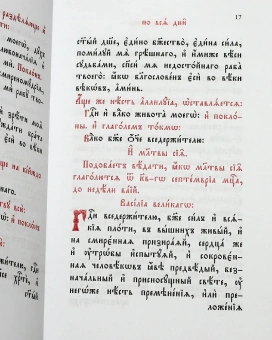 по всѧ̑ дни̑ 17
ст҃ы́й дш҃е, є҆ди́но бж҃ество̀, є҆ди́на си́ла,
поми́лꙋй мѧ̀ грѣ́шнаго, и҆ и҆́миже вѣ́си
сꙋдьба́ми, сп҃си́ мѧ недосто́йнаго раба̀
твоего̀: ꙗ҆́кѡ бл҃гослове́нъ є҆сѝ во вѣ́ки
вѣкѡ́въ, а҆ми́нь.
А҆́ще же нѣ́сть а҆ллилꙋ́їа, ѡ҆ставлѧ́етсѧ:
Гдⷭ҇и и҆ влⷣко живота̀ моегѡ̀: и҆ покло́-
ны. и҆ глаго́лемъ то́кмѡ:
Влⷣко бж҃е ѻ҆́ч҃е вседержи́телю:
И҆ мл҃твы сїѧ̑.
Подоба́етъ вѣ́дати, ꙗ҆́кѡ мл҃тва сїѧ̀
глаго́летсѧ ѿ к҃в-гѡ септе́мврїа мцⷭ҇а,
до недѣ́ли ва́їй.
Васі́лїа вели́кагѡ:
Гдⷭ҇и вседержи́телю, бж҃е си́лъ и҆ всѧ́-
кїѧ пло́ти, въ вы́шнихъ живы́й, и҆
на смирє́ннаѧ призира́ѧй, сердца́ же
и҆ ᲂу҆трѡ́бы и҆спытꙋ́ѧй, и҆ сокровє́н-
наѧ человѣ́кѡвъ ꙗ҆́вѣ предвѣ́дый, безна-
ча́льный и҆ присносꙋ́щный свѣ́те, ᲂу҆
негѡ́же нѣ́сть премѣне́нїѧ, и҆лѝ пре-
ложе́нїѧ